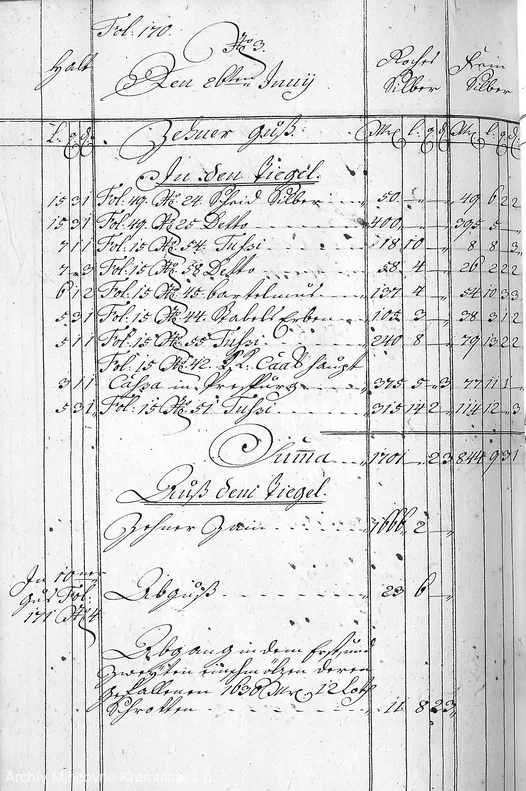 Fol: 170.
No 3.
Halt Den 26ten Junij Roches Silber Fein Silber
L. q d Zehner Guß. Mrk l. q d Mrk l. q d
In den Tiegel.
15 3 1 Fol: 49. No 24. Scheid Silber 50. — — 49 6 2 2
15 3 1 Fol: 49. No 25 Detto 400, — — 395 5 —
7 1 1 Fol: 15 No 54. Tussi 18 10 — 8 8 3
7 — 3 Fol: 15 No 58 Detto 58 4 — 26 2 2 2
6 1 2 Fol: 15 No 45. 137 4 — 54 10 3 3
5 3 1 Fol: 15 No 44. Erben 105 3 — 38 3 1 2
5 1 1 Fol: 15 No 55 Tussi 240 8 — 79 13 2 2
Fol: 15 No 42. Haupt
3 1 1 Cassa in Presburg 375 5 — 3 77 11 1 —
5 3 1 Fol: 15 No 51 Tussi 315 14 2 — 114 12 — 3
Summa 1701 — 2 3 844 9 3 1
Auß dem Tiegel.
Zehner Zain 1666 2 —
In 10ner Guß Fol: 171 No 4
Abguß 23 6 —
Abgang in dem Erst und
Zweyten einschmölzen deren
gefallenen 1636 Mrk 12 Loth
Schrotten 11 8 2 3
Archív Mincovne Kremnica, š.p.